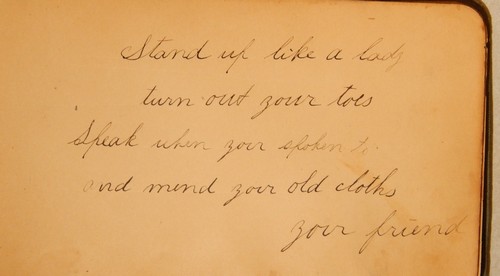 Stand up like a lady
turn out your toes
Speak when your spoken to
and mend your old cloths
your friend